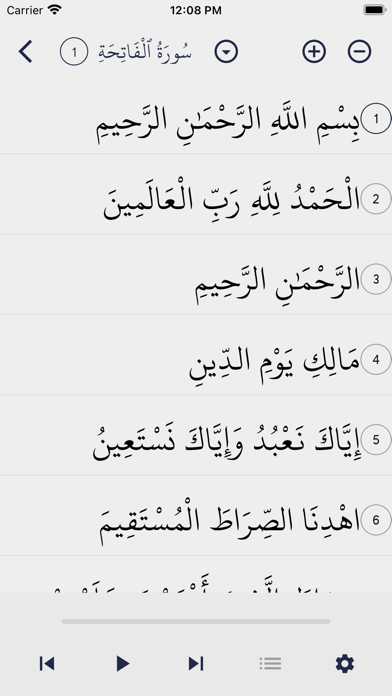 Carrier 12:08 PM
1 سُورَةُ ٱلْفَاتِحَةِ
بِسْمِ اللَّهِ الرَّحْمَٰنِ الرَّحِيمِ 1
الْحَمْدُ لِلَّهِ رَبِّ الْعَالَمِينَ 2
الرَّحْمَٰنِ الرَّحِيمِ 3
مَالِكِ يَوْمِ الدِّينِ 4
إِيَّاكَ نَعْبُدُ وَإِيَّاكَ نَسْتَعِينُ 5
اهْدِنَا الصِّرَاطَ الْمُسْتَقِيمَ 6